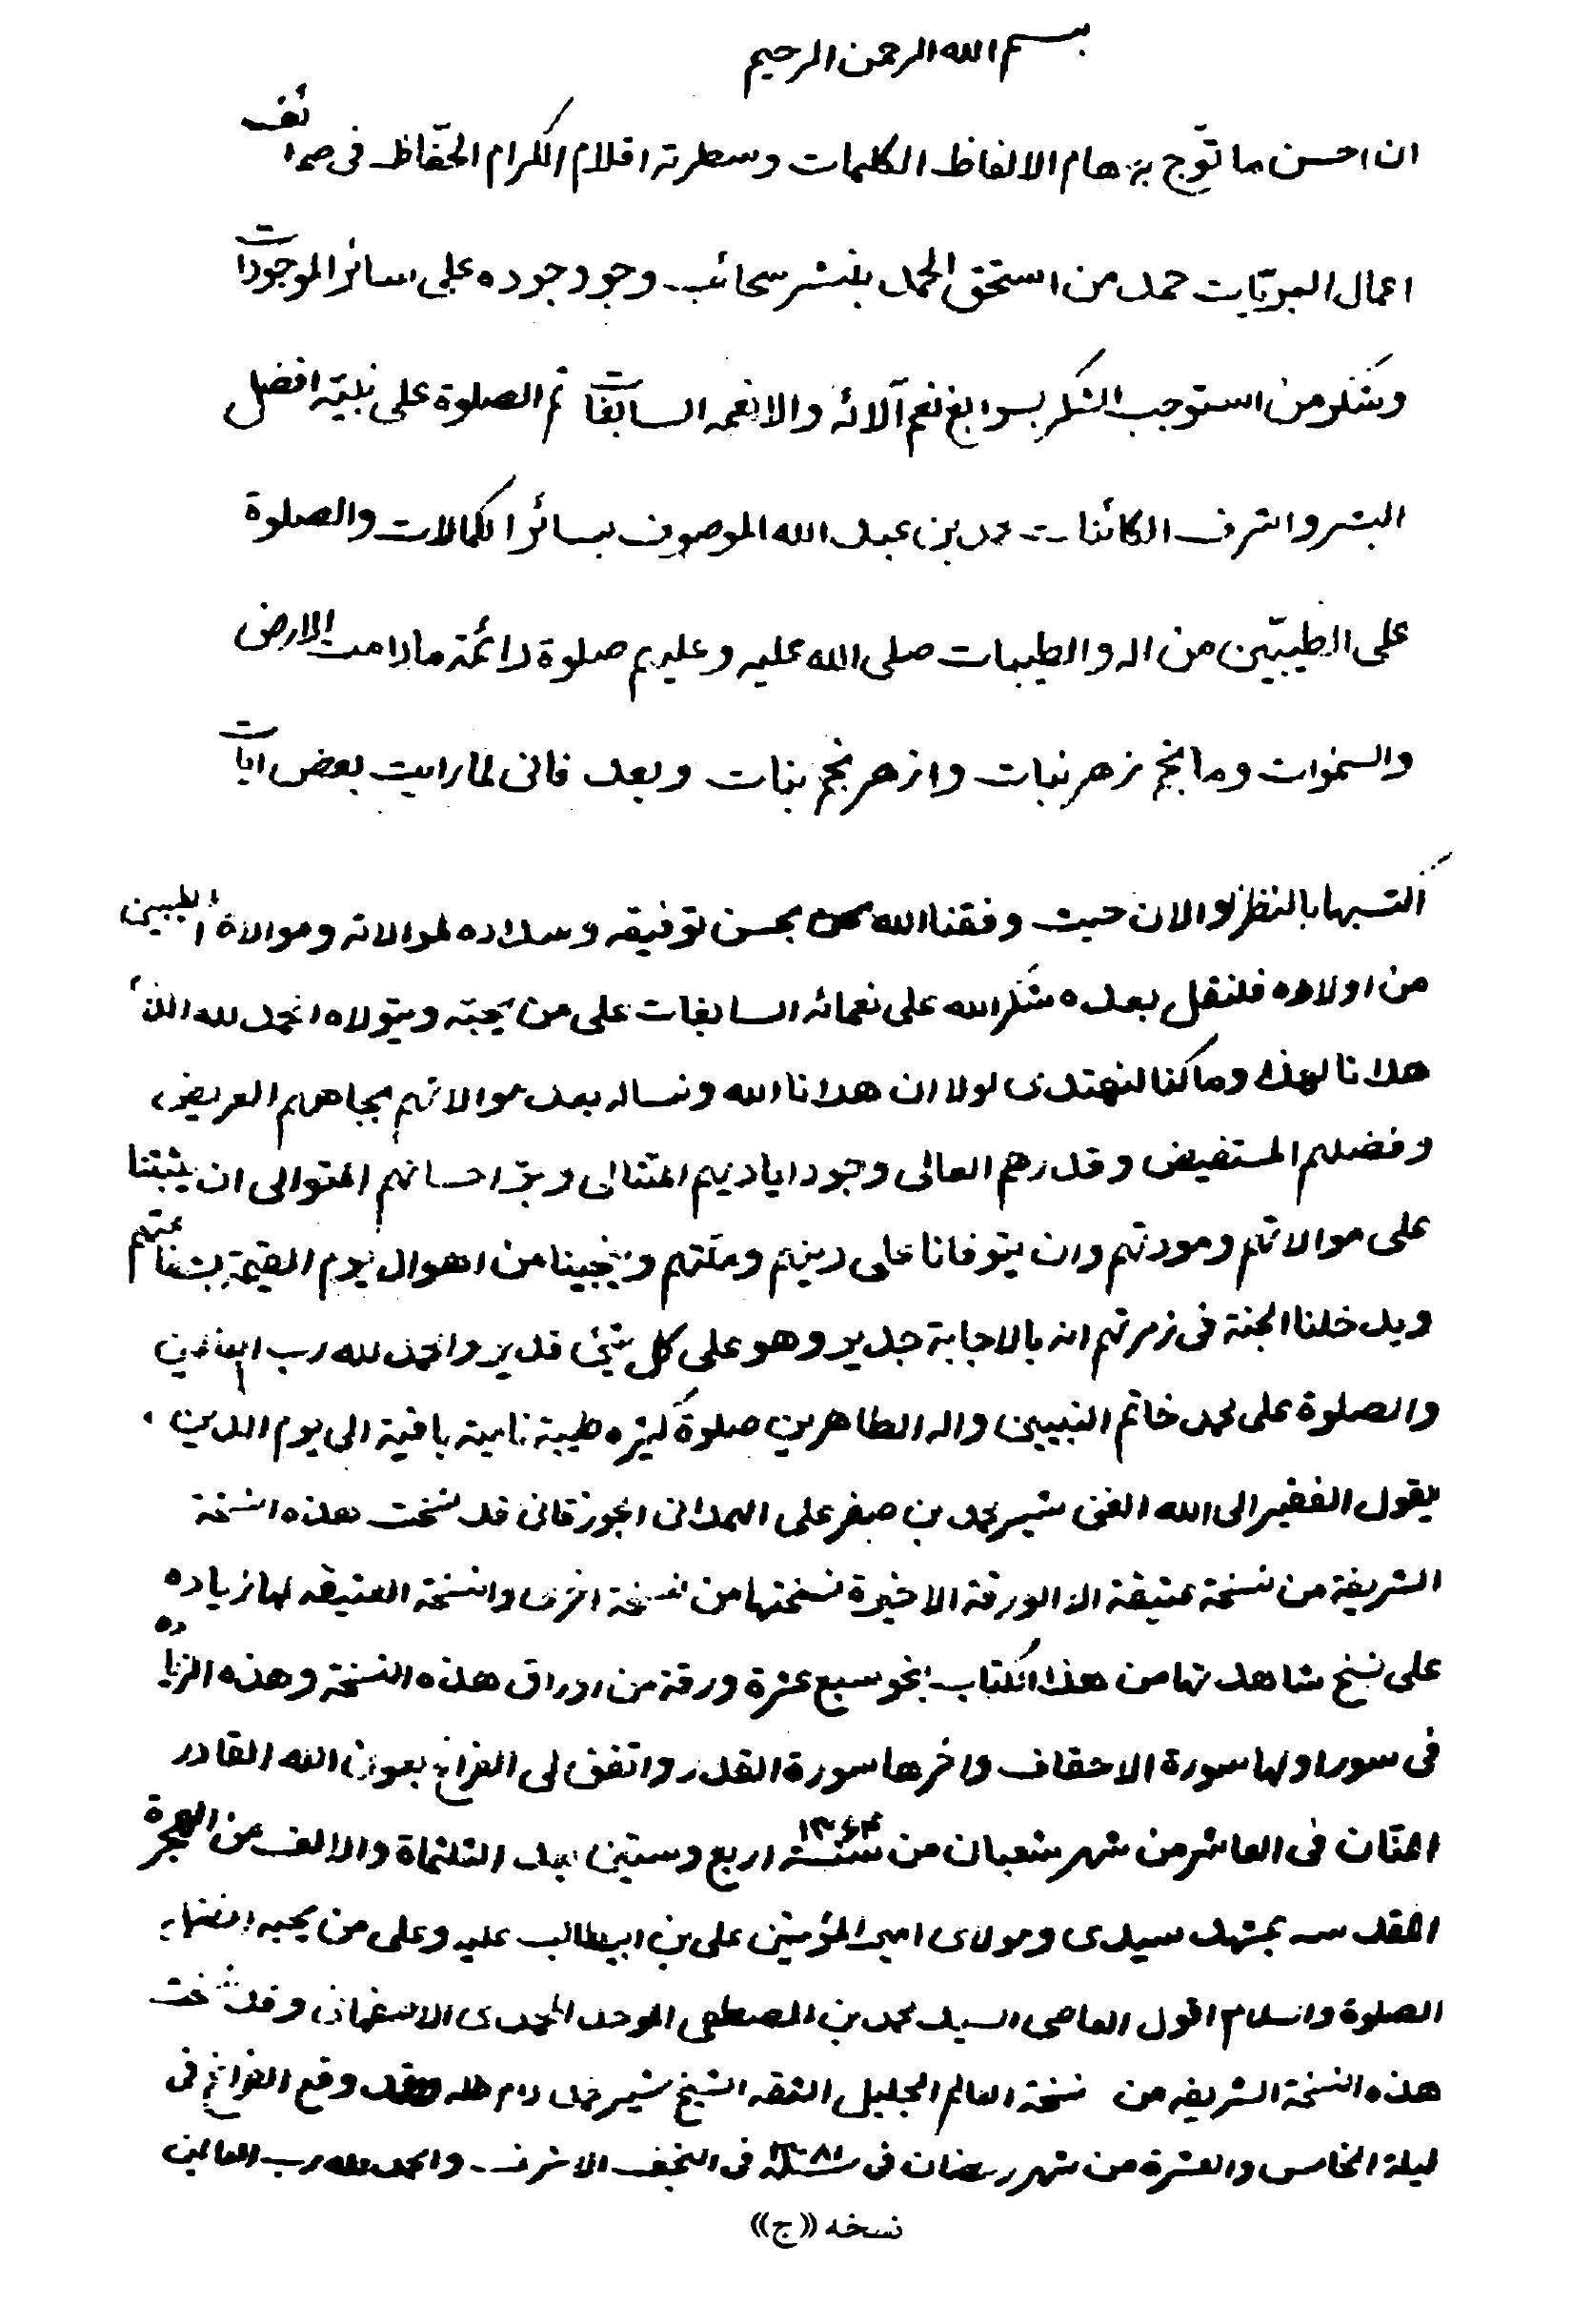 بسم الله الرحمن الرحيم
ان احسن ما توّج به هام الالفاظ الكلمات وسطرته اقلام الكرام الحفّاظ فى صحائف
اعمال البريّات حمد من استحق الحمد بنشر سحائب وجود جوده على سائر الموجودات
وشكر من استوجب الشكر بسوابغ نعم آلائه والانعمه السابغات ثم الصلوة على نبيّه افضل
البشر واشرف الكائنات محمد بن عبد الله الموصوف بسائر الكمالات والصلوة
على الطيبّين من اله والطيبات صلى الله عليه وعليهم صلوة دائمة ما دامت الارض
والسموات وما نجم زهر نبات وازهر نجم بنات وبعد فانى لما رايت بعض ايات
حيث وفقنا الله بحسن توفيقه وسداده لموالاته وموالاة الطيبين
من اولاده فلنقل بعده شكر الله على نعمائه السابغات على من يحبّه ويتولاه الحمد لله الذى
هدانا لهذا وما كنا لنهتدى لولا ان هدانا الله ونساله بعد موالاتهم بجاههم العريض
وفضلهم المستفيض وقدرهم العالى وجود اياديهم المتتالى وبرّ احسانهم المتوالى ان يثبتنا
على موالاتهم ومودتهم وان يتوفانا على دينهم وملّتهم وينجينا من اهوال يوم القيمة بشفاعتهم
ويدخلنا الجنة فى زمرتهم انه بالاجابة جدير وهو على كل شئ قدير والحمد لله رب العالمين
والصلوة على محمد خاتم النبيين واله الطاهرين صلوة كثيره طيبة نامية باقية الى يوم الدين
يقول الفقير الى الله الغنى شير محمد بن صفر على الهمدانى الجورقانى قد نسخت هذه النسخة
الشريفة من نسخة عتيقة الا الورقة الاخيرة نسختها من نسخة اخرى والنسخة العتيقه لها زياده
على نسخ شاهدتها من هذا الكتاب بنحو سبع عشرة ورقة من اوراق هذه النسخة وهذه الزياده
فى سور اولها سورة الاحقاف واخرها سورة القدر واتفق لى الفراغ بعون الله القادر
المنّان فى العاشر من شهر شعبان من سنة ١٣۶۴ اربع وستين بعد الثلثماة والالف من الهجرة
المقدسه بمشهد سيدى ومولاى امير المؤمنين على بن ابيطالب عليه وعلى من يحبه افضل
الصلوة والسلام اقول العاصى السيد محمد بن المصطفى الموحد المحمدى الاصفهانى وقد نسخت
هذه النسخة الشريفه من نسخة العالم الجليل الثقه الشيخ شير محمد دام ظله وقد وقع الفراغ فى
ليلة الخامس والعشرة من شهر رمضان فى سنة ١٣٨١ فى النجف الاشرف والحمد لله رب العالمين
نسخه ((ج))